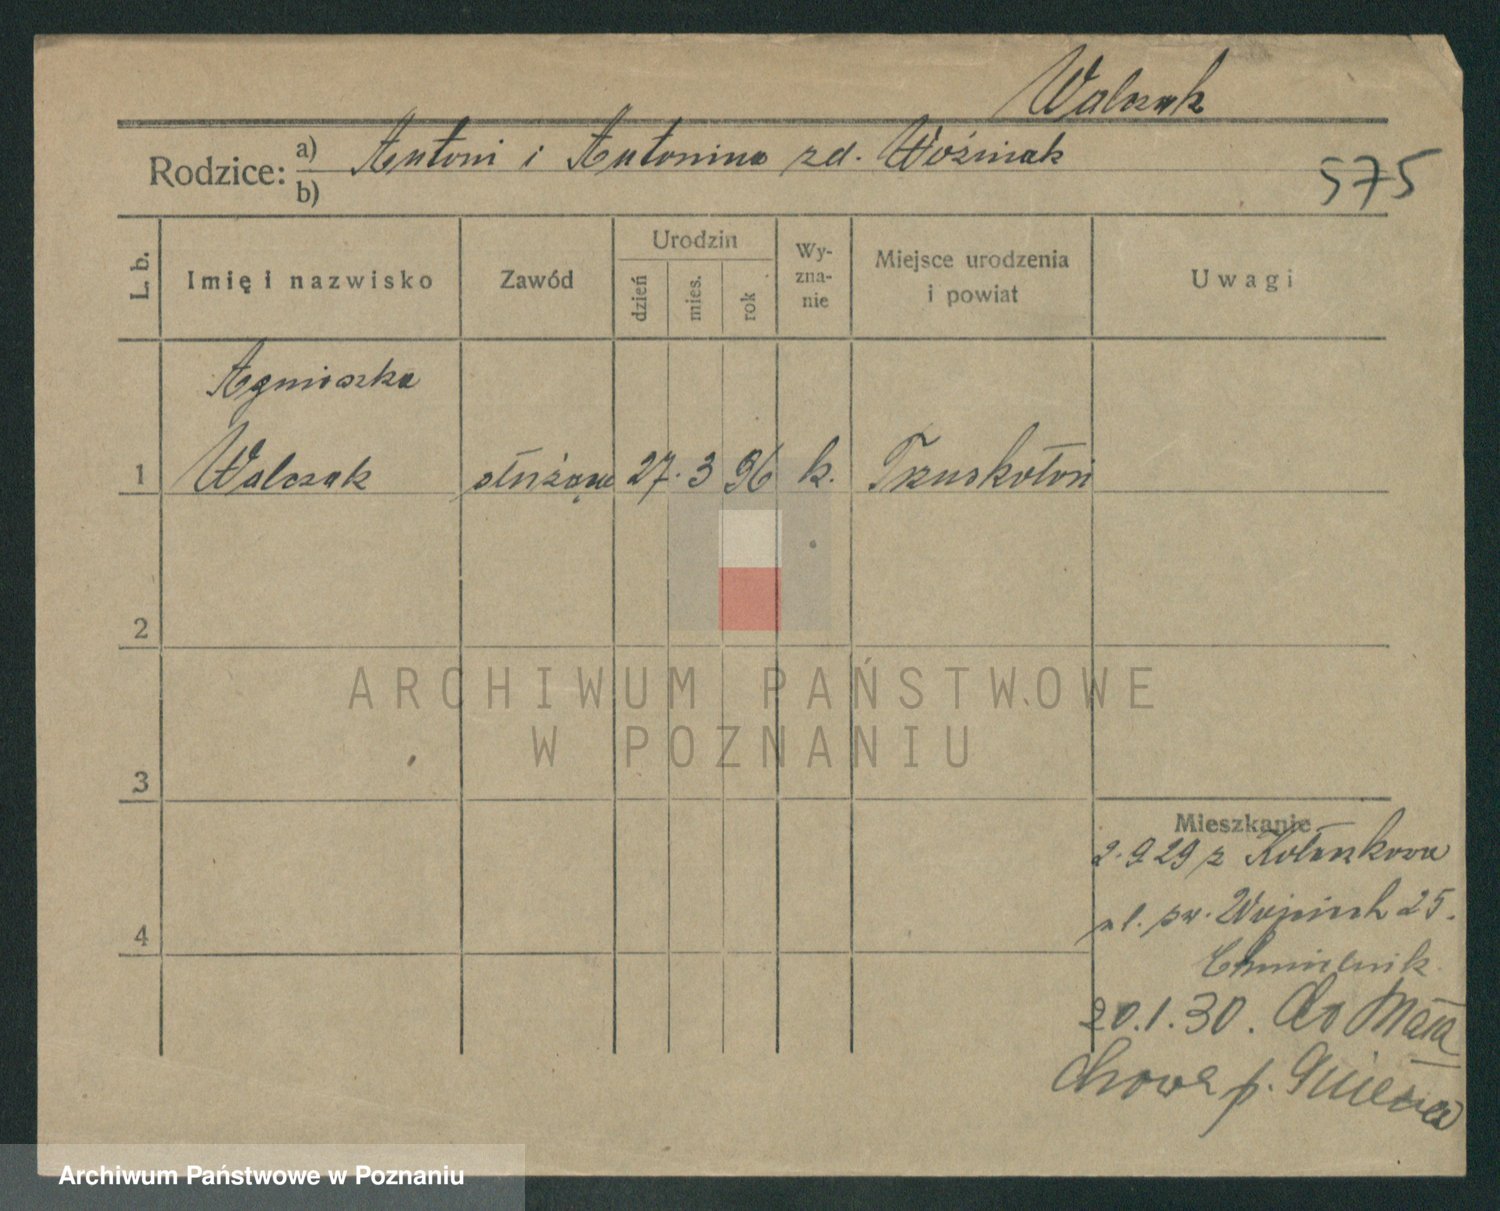 Walczak
Rodzice: a) Antoni i Antonina zd. Woźniak
b)
575
L. b.
Imię i nazwisko
Zawód
Urodzin
dzień
mies.
rok
Wy-
zna-
nie
Miejsce urodzenia
i powiat
Uwagi
Agnieszka
1 Walczak służąca 27. 3 96 k. Truskołoń
2
3
4
Mieszkanie
2.9.29 z
ul. św. Wojciech 25.
Chmielnik
20.1.30. do Mała
chowa p. Gniezna
ARCHIWUM PAŃSTWOWE
W POZNANIU
Archiwum Państwowe w Poznaniu